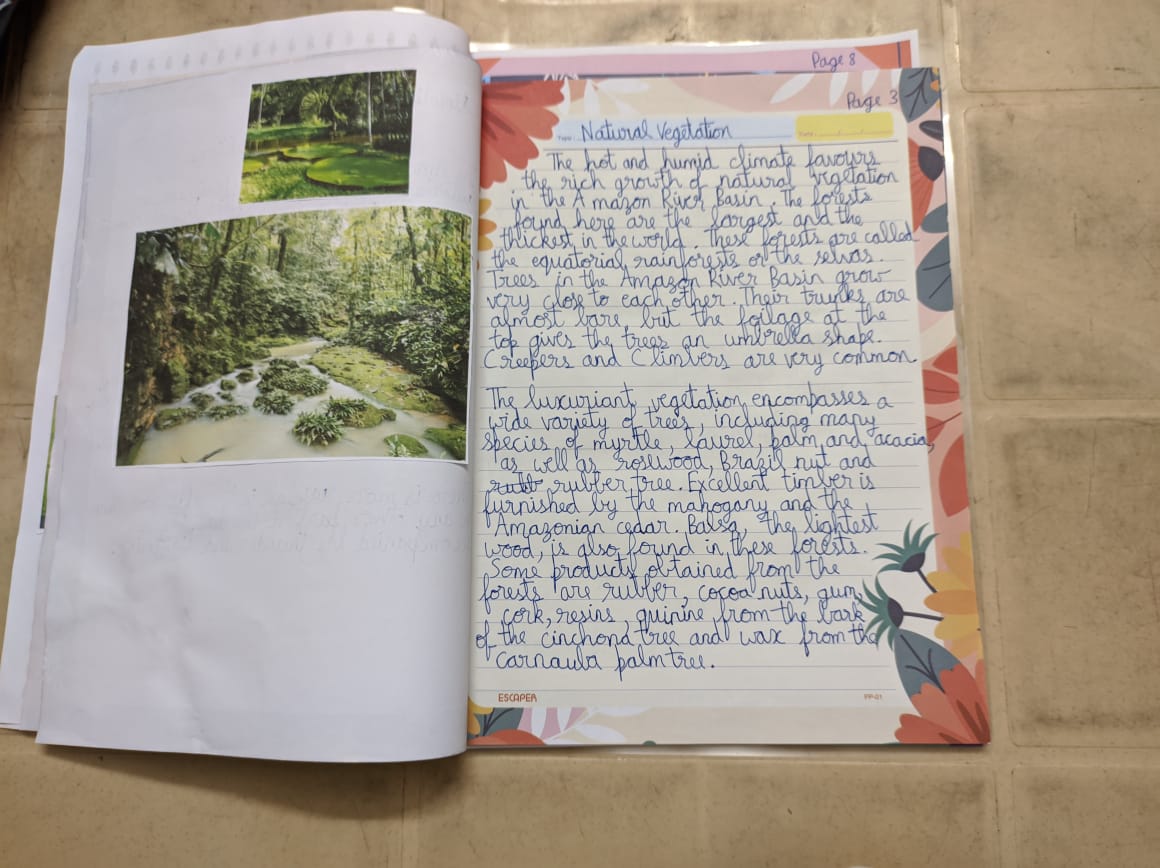 Page 8
Page 3
Topic: Natural Vegetation
Date:
The hot and humid climate favours
the rich growth of natural vegetation
in the Amazon River Basin. The forests
found here are the largest and the
thickest in the world. These forests are called
the equatorial rainforests or the selvas.
Trees in the Amazon River Basin grow
very close to each other. Their trunks are
almost bare, but the foilage at the
top gives the trees an umbrella shape.
Creepers and Climbers are very common
The luxuriant vegetation encompasses a
wide variety of trees, including many
species of myrtle, laurel, palm and acacia,
as well as rosewood, Brazil nut and
rubber tree. Excellent timber is
furnished by the mahogany and the
Amazonian cedar. Balsa, the lightest
wood, is also found in these forests.
Some products obtained from the
forests are rubber, cocoa nuts, gum,
cork, resins, quinine from the bark
of the cinchona tree and wax from the
Carnauba palm tree.
ESCAPER
PP-01